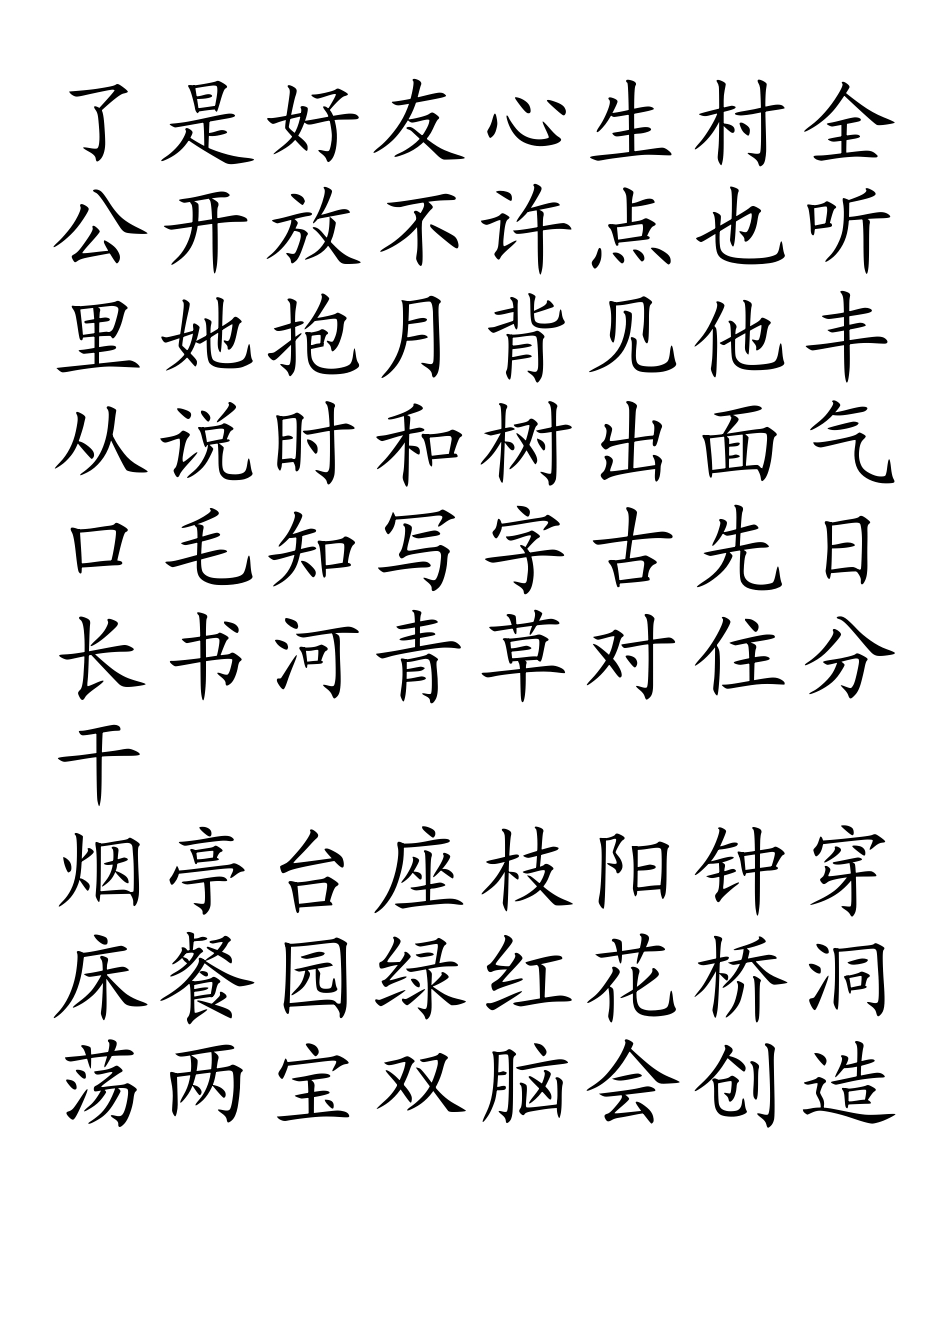 了是好友心生村全
公开放不许点也听
里她抱月背见他丰
从说时和树出面气
口毛知写字古先日
长书河青草对住分
干
烟亭台座枝阳钟穿
床餐园绿红花桥洞
荡两宝双脑会创造